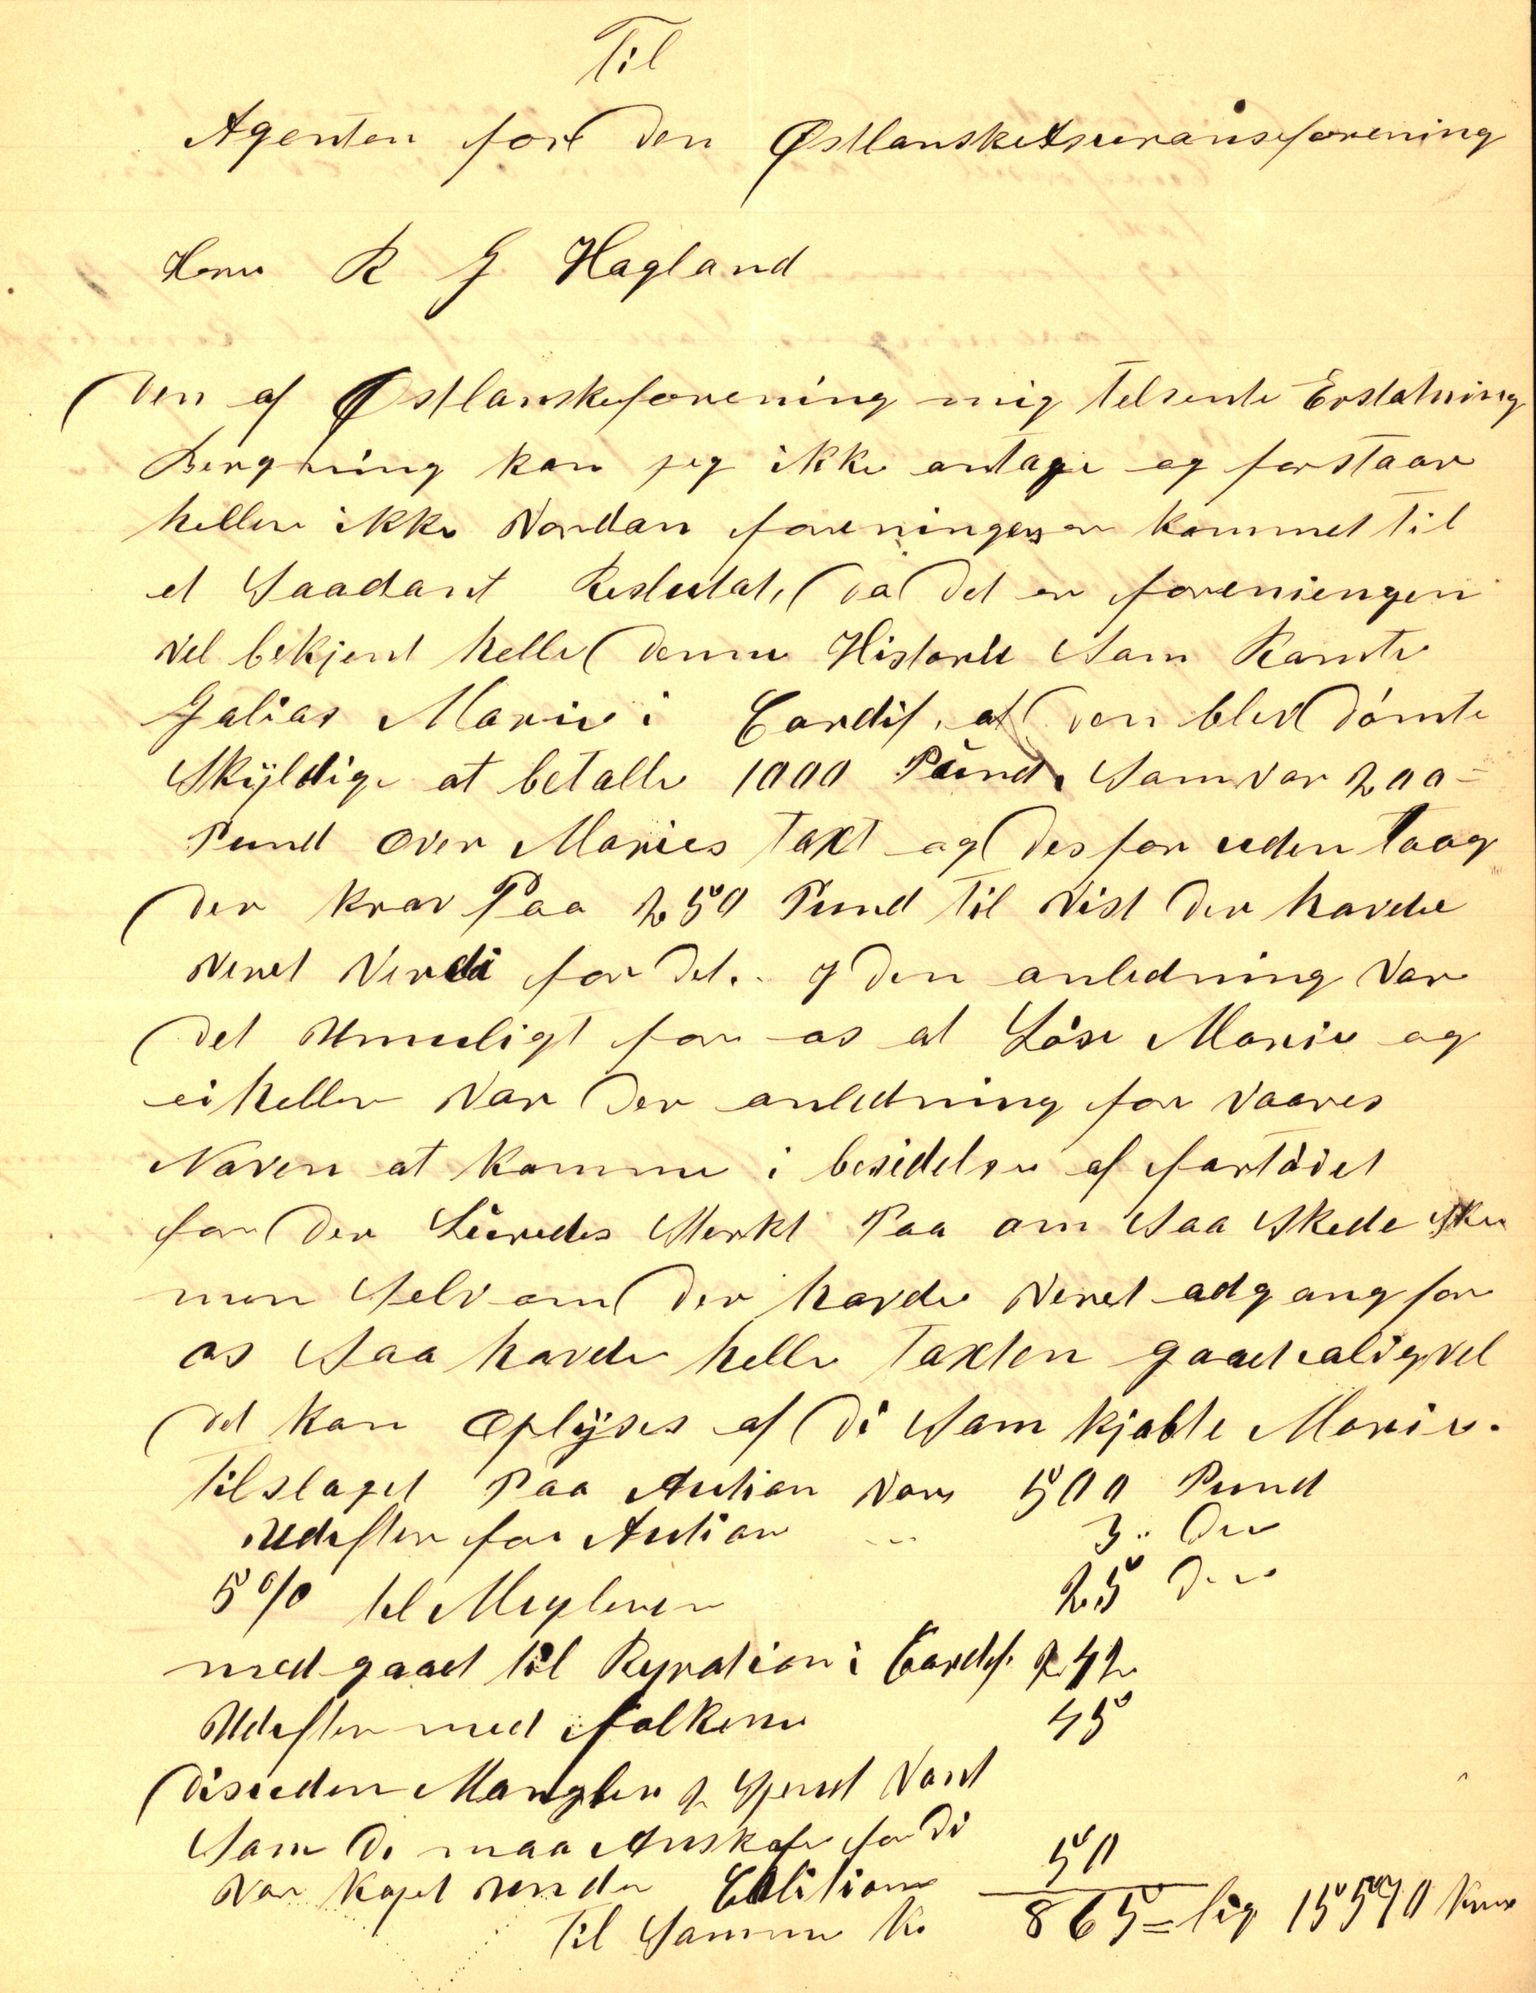 Til
Agenten for den Østlanske Asuranseforening
Herr R G Hagland
Den af Østlanskeforening mig telsente Erstatning
Bergning kan jeg ikke antage og forstaar
heller ikke vordan foreningen er kommet til
et saadant Resultat, da det er foreniengen
vel bekjent helle denne Historie som Ramte
Galias Marie i Cardif, at den blev dømte
skyldige at betalle 1000 Pund. som var 200=
Pund over Maries taxt og des for uden laag
der krav Paa 250 Pund til vist der havde
veret verdi for det. I den anledning var
det umuligt for os at Løse Marie og
ei heller var der anledning for vaares
Naven at komme i besidelse af fartøiet
for der Luredes sterkt Paa om saa skede
men selv om der havde veret adgang for
os saa havde helle taxten gaaet aligvel
det kan oplyses af di som kjøbte Marie.
tilslaget Paa Aution var 500 Pund
Udefter for Aution 3 "
5 % til Megleren 25 "
med gaaet til Reparation i Cardif. 242
Udefter med folkene 45
disuden Mangler Spend vant
som de maa Anskafe for di
var kapet under Colition 50
til sammen K. 865 = lig 15570 Kroner